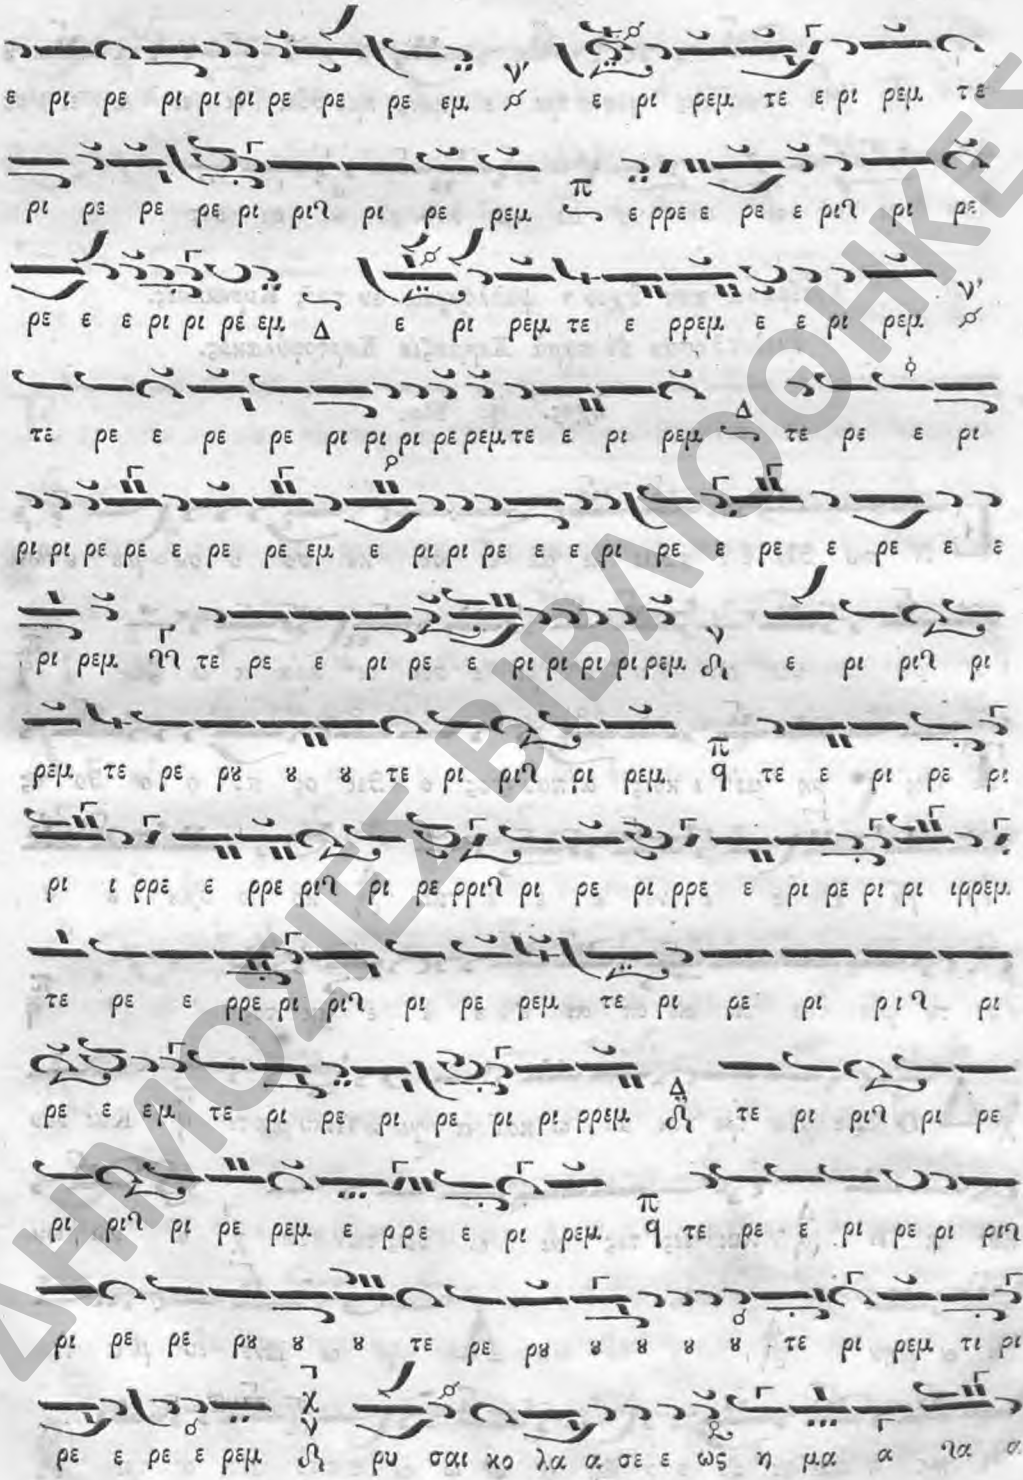 ε ρι ρε ρι ρι ρι ρε ρε ρε εμ ν' ε ρι ρεμ τε ε ρι ρεμ τε
ρι ρε ρε ρε ρι ριϞ ρι ρε ρεμ π ε ρρε ε ρε ε ριϞ ρι ρε
ρε ε ε ρι ρι ρε εμ Δ ε ρι ρεμ τε ε ρρεμ ε ε ρι ρεμ ν'
τε ρε ε ρε ρε ρι ρι ρι ρε ρεμ τε ε ρι ρεμ Δ τε ρε ε ρι
ρι ρι ρε ρε ε ρε ρε εμ ε ρι ρι ρε ε ε ρι ρε ε ρε ε ρε ε ε
ρι ρεμ τε ρε ε ρι ρε ε ρι ρι ρι ρι ρεμ ν ε ρι ριϞ ρι
ρεμ τε ρε ρȣ ȣ ȣ τε ρι ριϞ ρι ρεμ π q τε ε ρι ρε ρι
ρι ι ρρε ε ρρε ριϞ ρι ρε ρριϞ ρι ρε ρι ρρε ε ρι ρε ρι ρι ιρρεμ
τε ρε ε ρρε ρι ριϞ ρι ρε ρεμ τε ρι ρε ρι ριϞ ρι
ρε ε εμ τε ρι ρε ρι ρε ρι ρι ρρεμ Δ τε ρι ριϞ ρι ρε
ρι ριϞ ρι ρε ρεμ ε ρρε ε ρι ρεμ π q τε ρε ε ρι ρε ρι ριϞ
ρι ρε ρε ρȣ ȣ ȣ τε ρε ρȣ ȣ ȣ ȣ ȣ τε ρι ρεμ τι ρι
ρε ε ρε ε ρεμ χ ν ρυ σαι κο λα α σε ε ως η μα α Ϟα α
ΔΗΜΟΣΙΕΣ ΒΙΒΛΙΟΘΗΚΕΣ